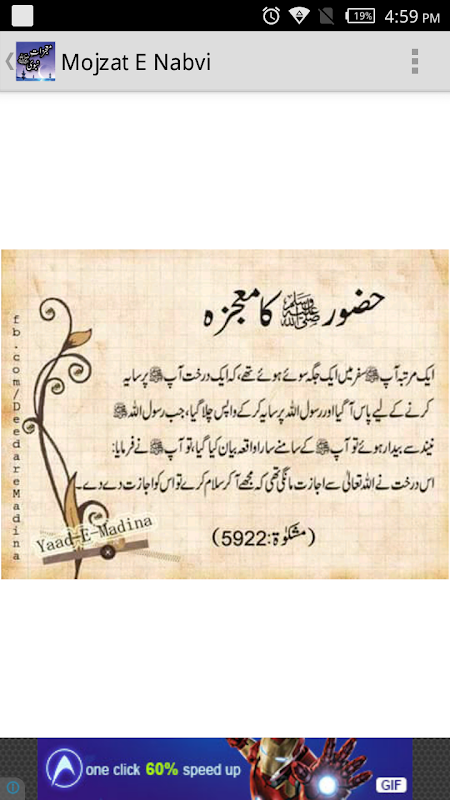 19% 4:59 PM
معجزات نبوی ﷺ
Mojzat E Nabvi
حضور ﷺ کا معجزہ
ایک مرتبہ آپ ﷺ سفر میں ایک جگہ سوئے ہوئے تھے، کہ ایک درخت آپ ﷺ پر سایہ
کرنے کے لیے پاس آ گیا اور رسول اللہ پر سایہ کر کے واپس چلا گیا، جب رسول اللہ ﷺ
نیند سے بیدار ہوئے تو آپ ﷺ کے سامنے سارا واقعہ بیان کیا گیا، تو آپ ﷺ نے فرمایا:
اس درخت نے اللہ تعالیٰ سے اجازت مانگی تھی کہ مجھے آ کر سلام کرے تو اس کو اجازت دے دے۔
(مشکوٰۃ:5922)
fb.com/DeedareMadina
Yaad-E-Madina
one click 60% speed up
GIF